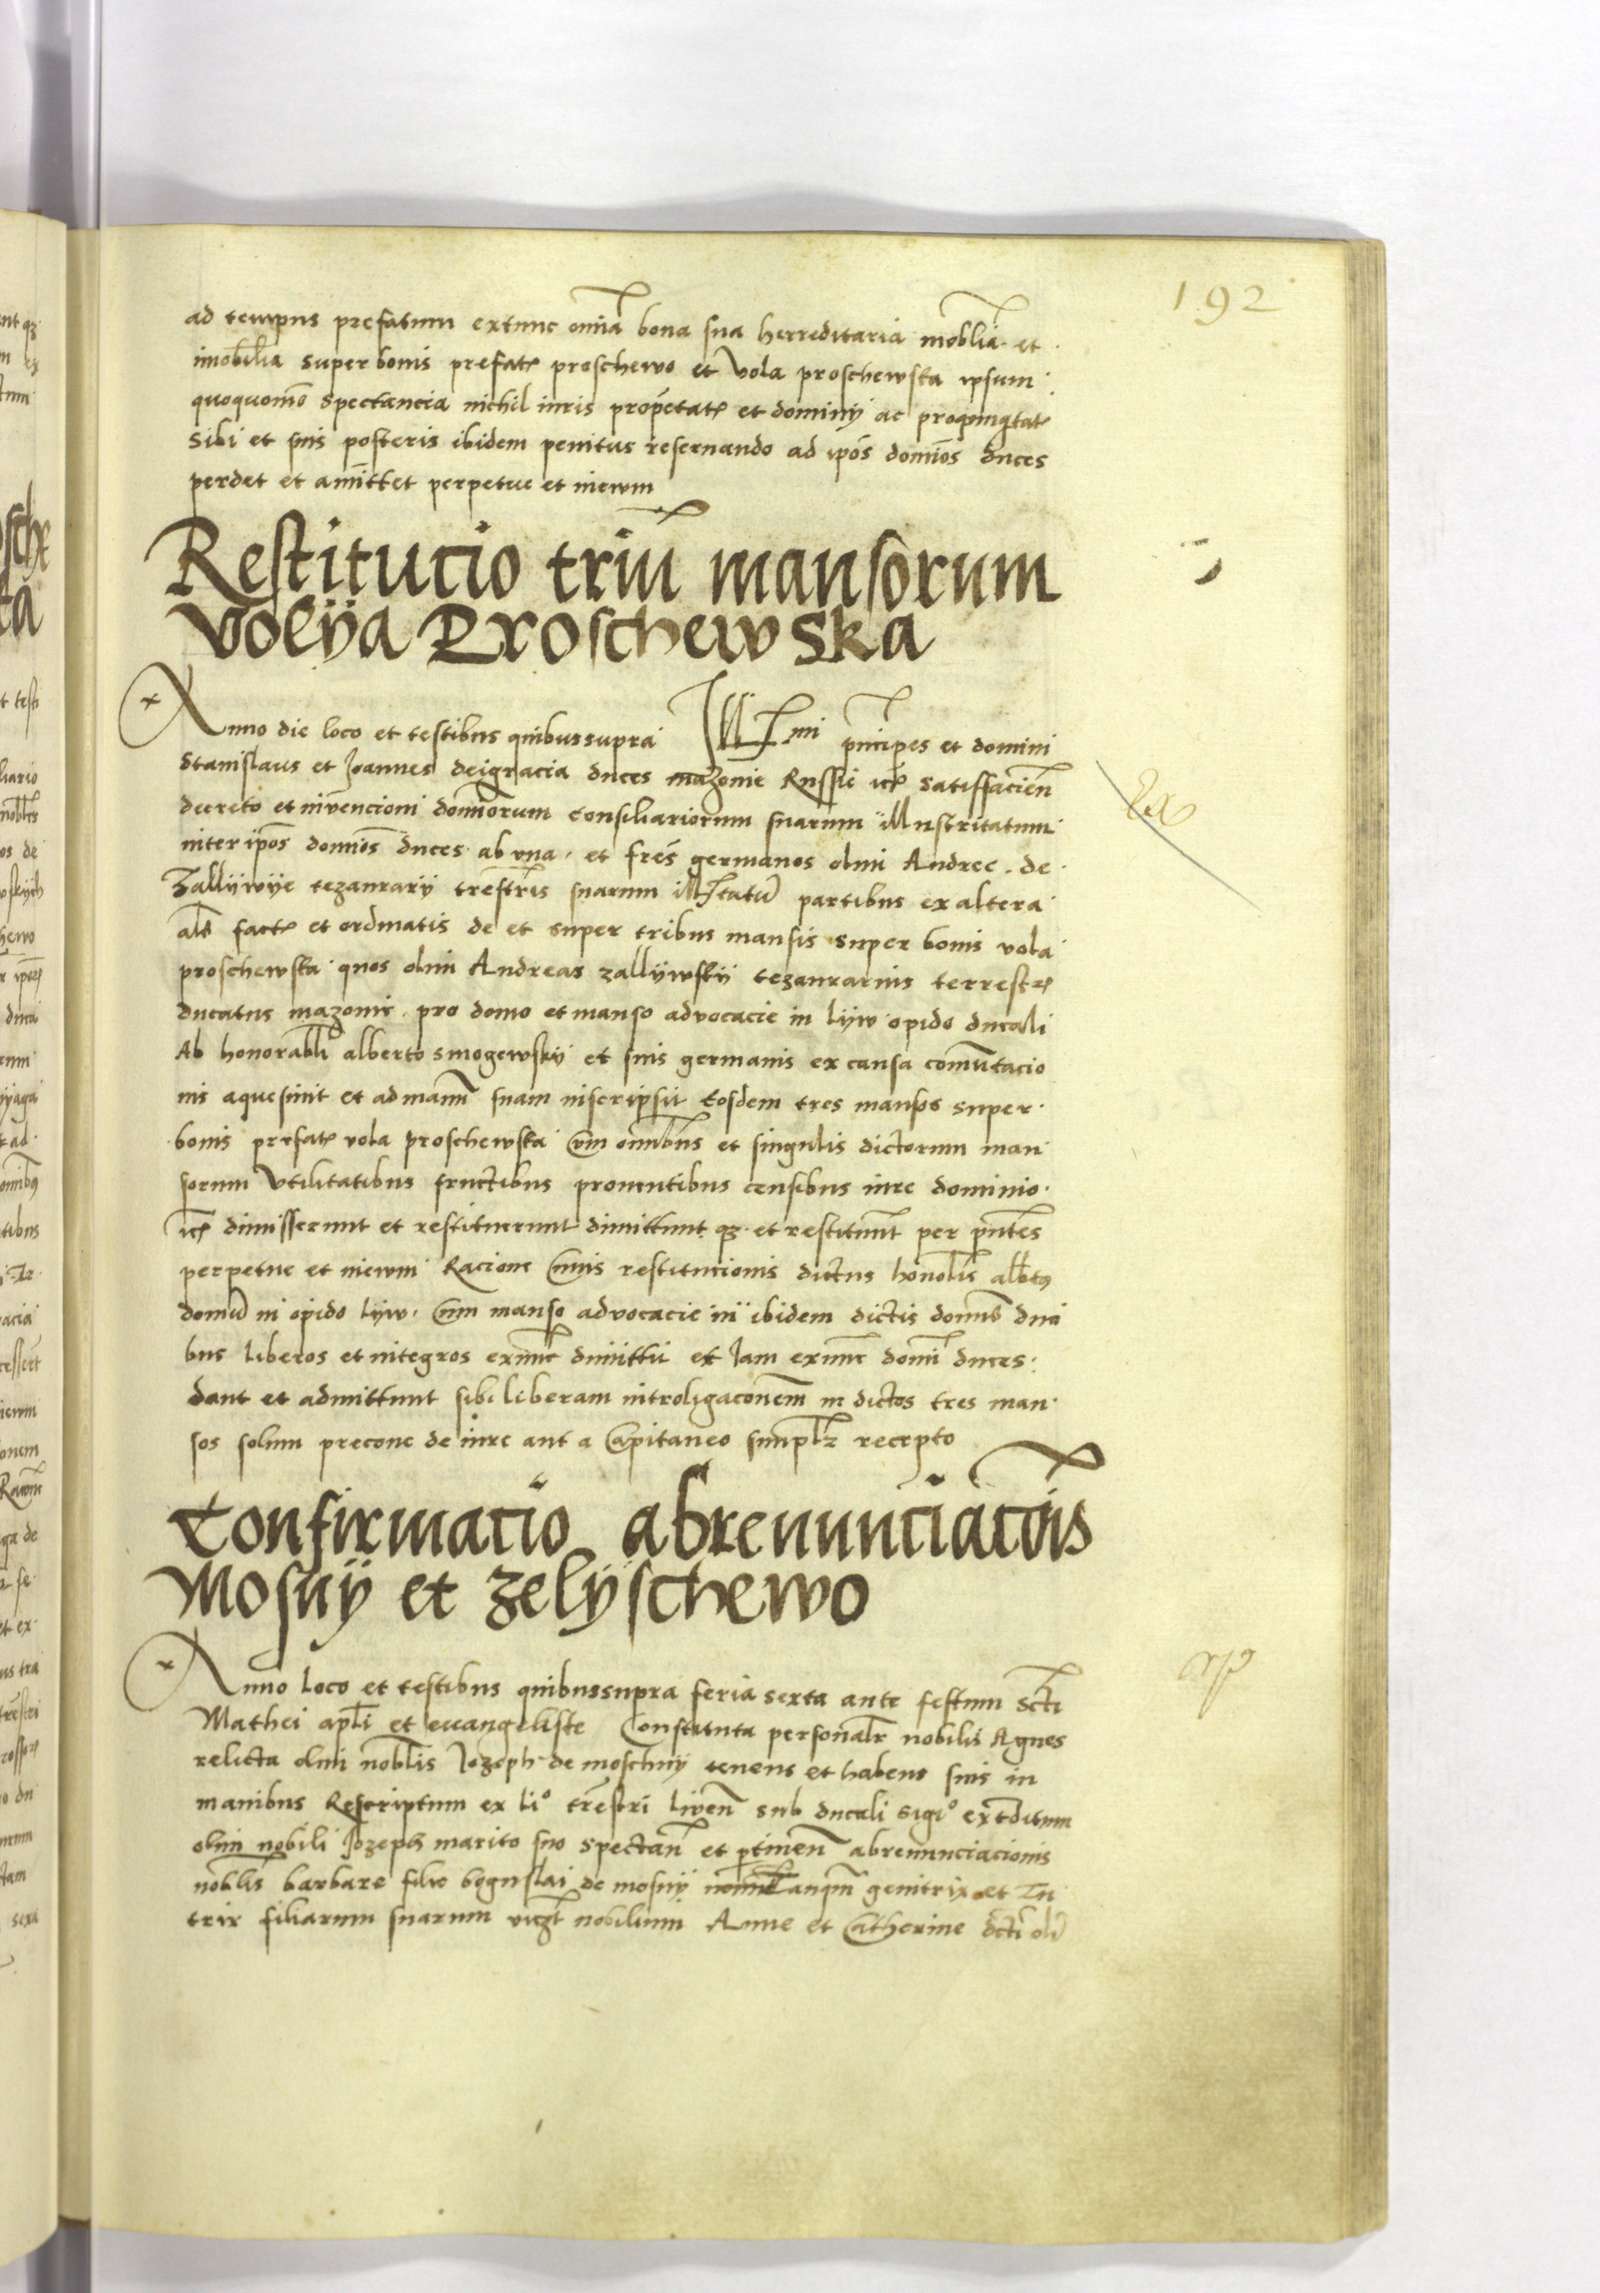 192
ad tempus prefatum extunc omia bona sua herreditaria moblia et
imobilia super bonis prefat proschewo et Vola proschewska ipsum
quoquomo spectancia nichil iuris propetat et dominy ac propinqtat
Sibi et suis posteris ibidem penitus reservando ad ipos domios duces
perdet et amittet perpetue et inewm
Restitucio triu mansorum
Volya Proschewska
Anno die loco et testibus quibussupra Ill mi principes et domini
Stanislaus et Joannes deigracia duces mazonie Russie etc satisfacien
decreto et invencioni domiorum consiliariorum suarum illustritatum
inter ipos domios duces ab una et fres germanos olim Andree de
Zallywye tezaurary trestris suarum illtatum partibus ex altera
als fact et ordinatis de et super tribus mansis super bonis vola
proschewska quos olim Andreas zallywsky tezaurarius terrestr
ducatus mazonie pro domo et manso advocacie in lyw opido ducali
Ab honorabli alberto smogewsky et suis germanis ex causa comutacio
nis aquesivit et ad manu suam inscripsit Eosdem tres mansos super
bonis prefat vola proschewska cum omnibus et singulis dictorum man
sorum Utilitatibus fructibus proventibus censibus iure dominio
etc dimisserunt et restituerunt dimittunt qz et restituunt per pntes
perpetue et inewm Racione cuius restitucionis dictus honolis albtus
domu in opido lyw cum manso advocacie in ibidem dictis domis duci
bus liberos et integros exnunc dimittit et Jam exnunc domi duces
dant et admittunt sibi liberam introligaconem in dictos tres man
sos solum precone de iure aut a Capitaneo simplr recepto
Confirmacio abrenunciacois
Mosny et zelyschewo
Anno loco et testibus quibussupra feria sexta ante festum scti
Mathei apli et ewangeliste Constituta personalr nobilis Agnes
relicta olim noblis Jozeph de moschny tenens et habens suis in
manibus Rescriptum ex lio trestri liwen sub ducali sigio extditum
olim nobili Jozeph marito suo spectan et ptinen abrenunciacionis
noblis barbare filie boguslai de mosny tanqm genitrix et Tu
trix filiarum suarum viczt nobilium Anne et Catherine dcti oli